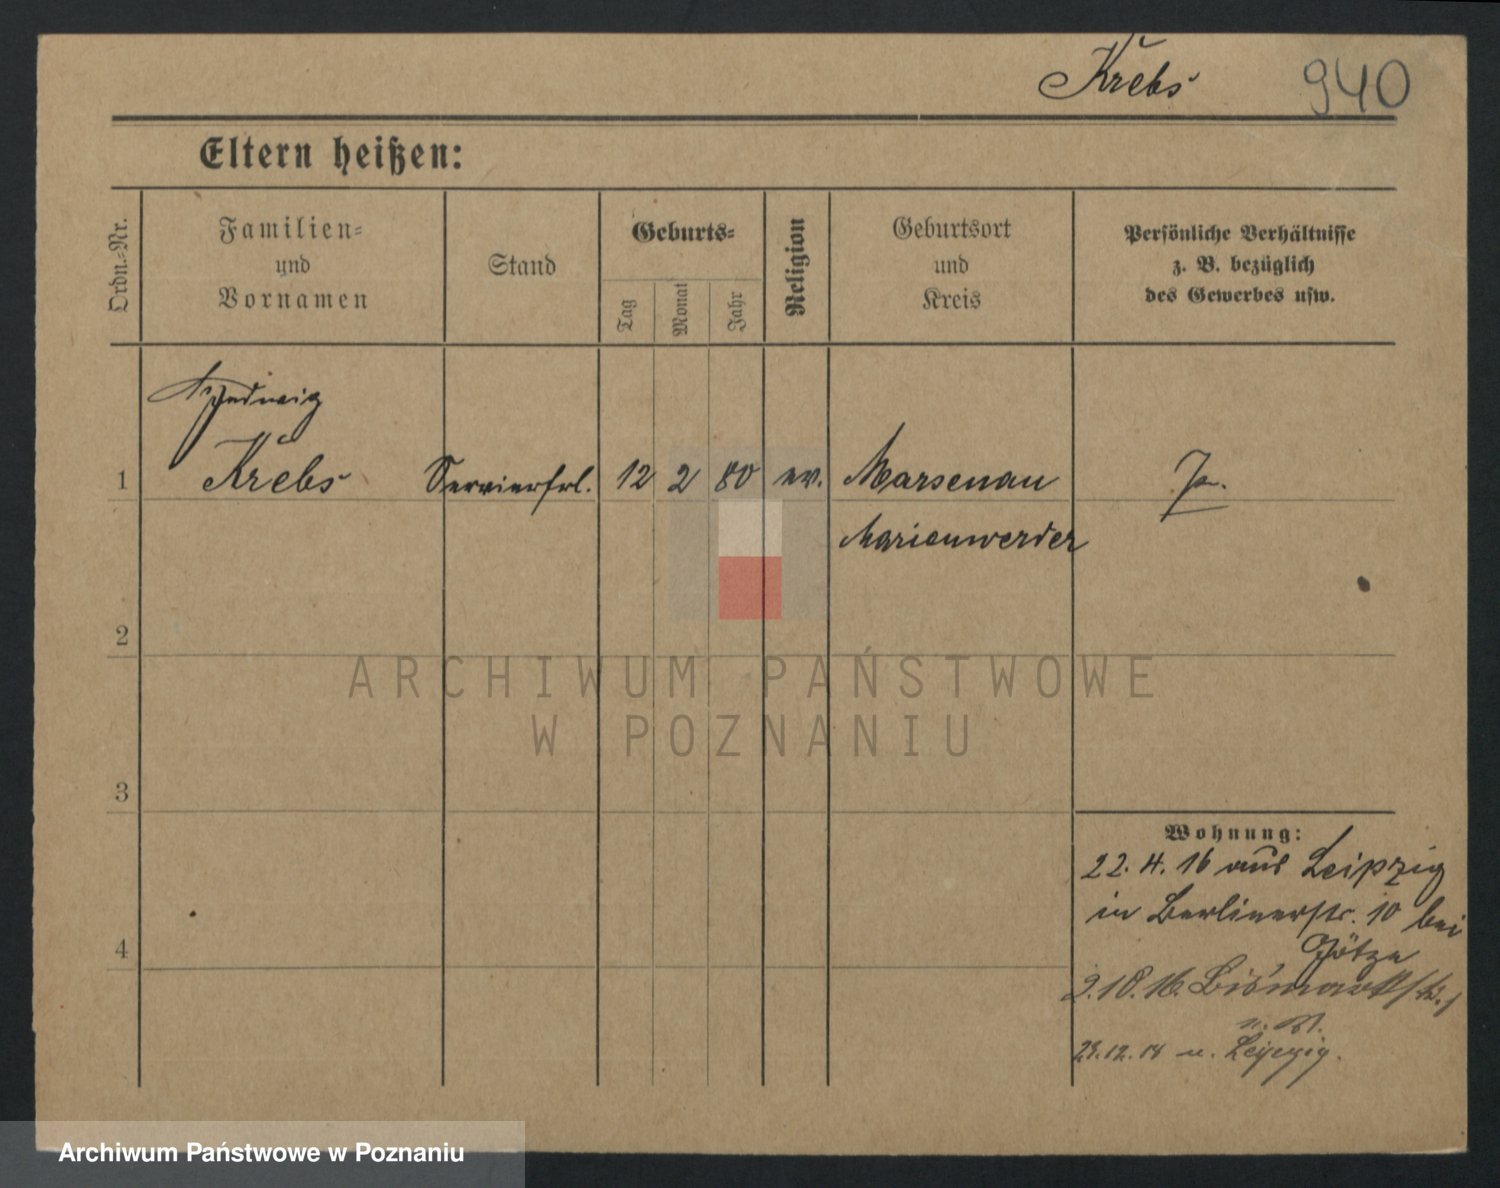 Krebs 940
Eltern heißen:
Ordn.-Nr.
Familien-
und
Vornamen
Stand
Geburts-
Tag
Monat
Jahr
Religion
Geburtsort
und
Kreis
Persönliche Verhältnisse
z. B. bezüglich
des Gewerbes usw.
Hedwig
1 Krebs Servierfrl. 12 2 80 ev. Marsenau
Marienwerder
2
ARCHIWUM PAŃSTWOWE
W POZNANIU
3
Wohnung:
22. 4. 16 aus Leipzig
in Berlinerstr. 10 bei
Götze
4
2.10.16. Bismarckstr. 1
n. Leipzig.
Archiwum Państwowe w Poznaniu